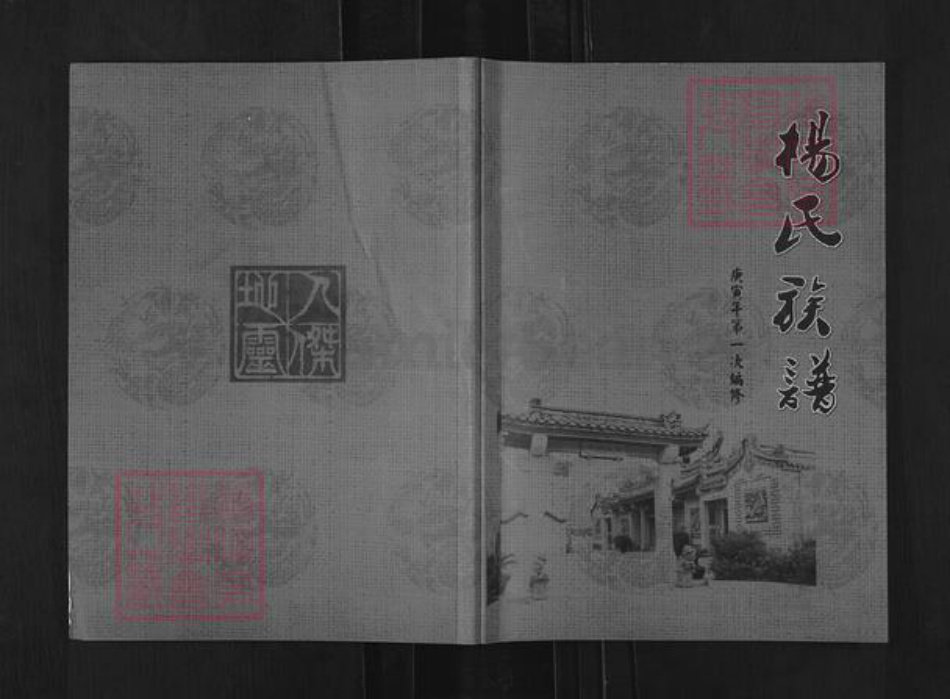 楊氏族譜
庚寅年第一次編修
人傑
地靈